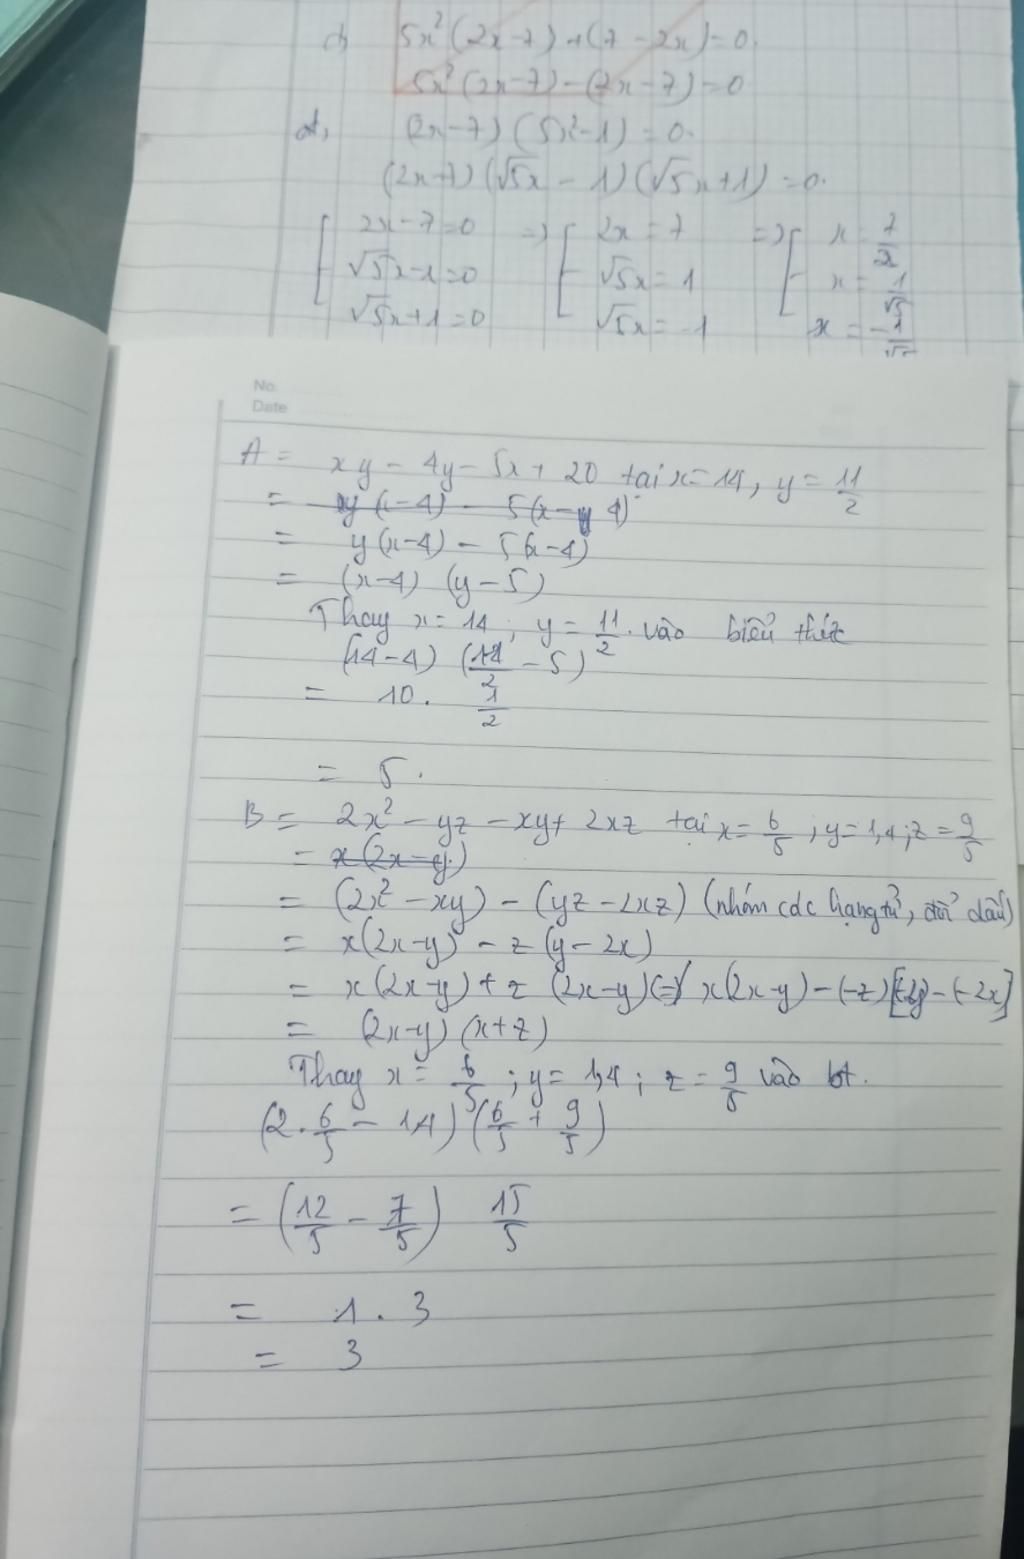 5x²(2x-7)+(7-2x)=0.
5x²(2x-7)-(2x-7)=0
d, (2x-7)(5x²-1)=0.
(2x-7)(√5x-1)(√5x+1)=0.
[ 2x-7=0 => [ 2x=7 => [ x=7/2
√5x-1=0 √5x=1 x=1/√5
√5x+1=0 √5x=-1 x=-1/√5
No.
Date
A = xy-4y-5x+20 tại x=14, y=11/2
= y(x-4)-5(x-y 4)
= y(x-4)-5(x-4)
= (x-4)(y-5)
Thay x=14; y=11/2 vào biểu thức
(14-4)(11/2-5)
= 10.1/2
= 5.
B = 2x²-yz-xy+2xz tại x=6/5; y=1,4; z=9/5
= x(2x-y)
= (2x²-xy)-(yz-2xz) (nhóm các hạng tử, đổi dấu)
= x(2x-y)-z(y-2x)
= x(2x-y)+z(2x-y)(=) x(2x-y)-(-z)
= (2x-y)(x+z)
Thay x=6/5; y=1,4; z=9/5 vào bt.
(2.6/5-1,4)(6/5+9/5)
= (12/5-7/5) 15/5
= 1.3
= 3